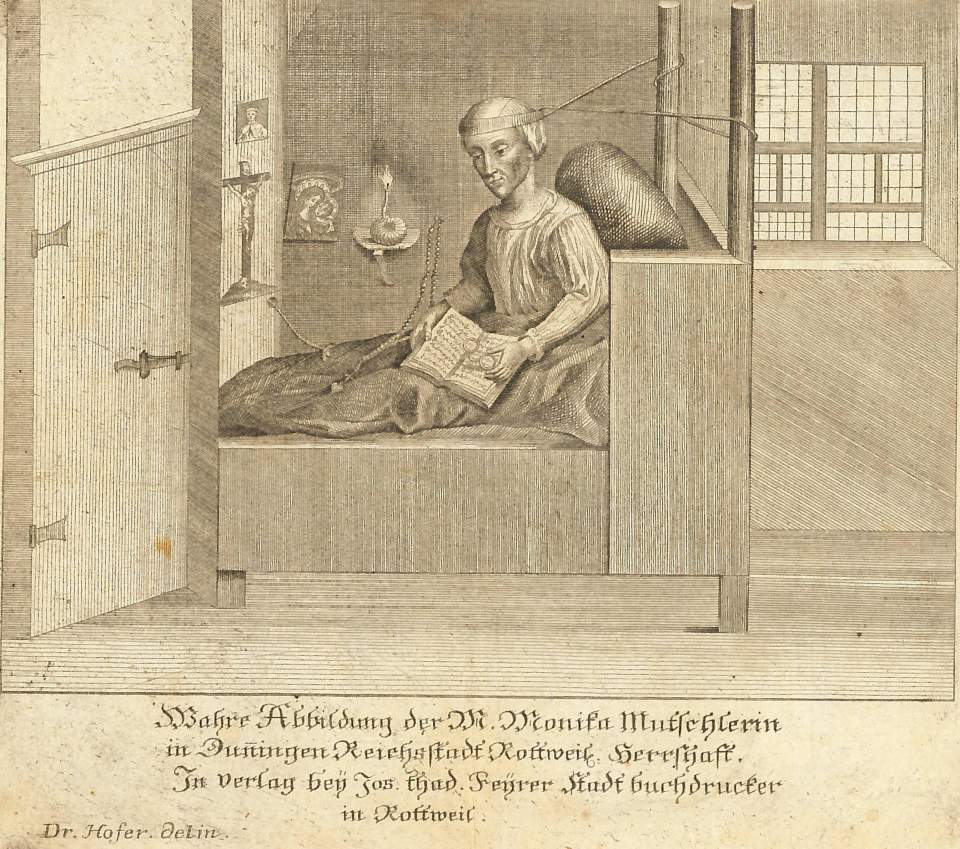 Wahre Abbildung der M. Monika Mutschlerin
in Duñingen Reichsstadt Rottweil. Herrschaft.
In verlag beÿ Jos. thad. Feÿrer Stadt buchdrucker
in Rottweil.
Dr. Hofer. delin.